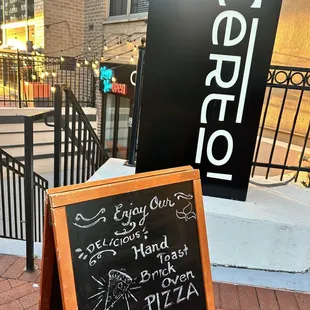 CERTOI
OPEN
Enjoy Our
DELICIOUS
Hand
Toast
Brick
Oven
PIZZA